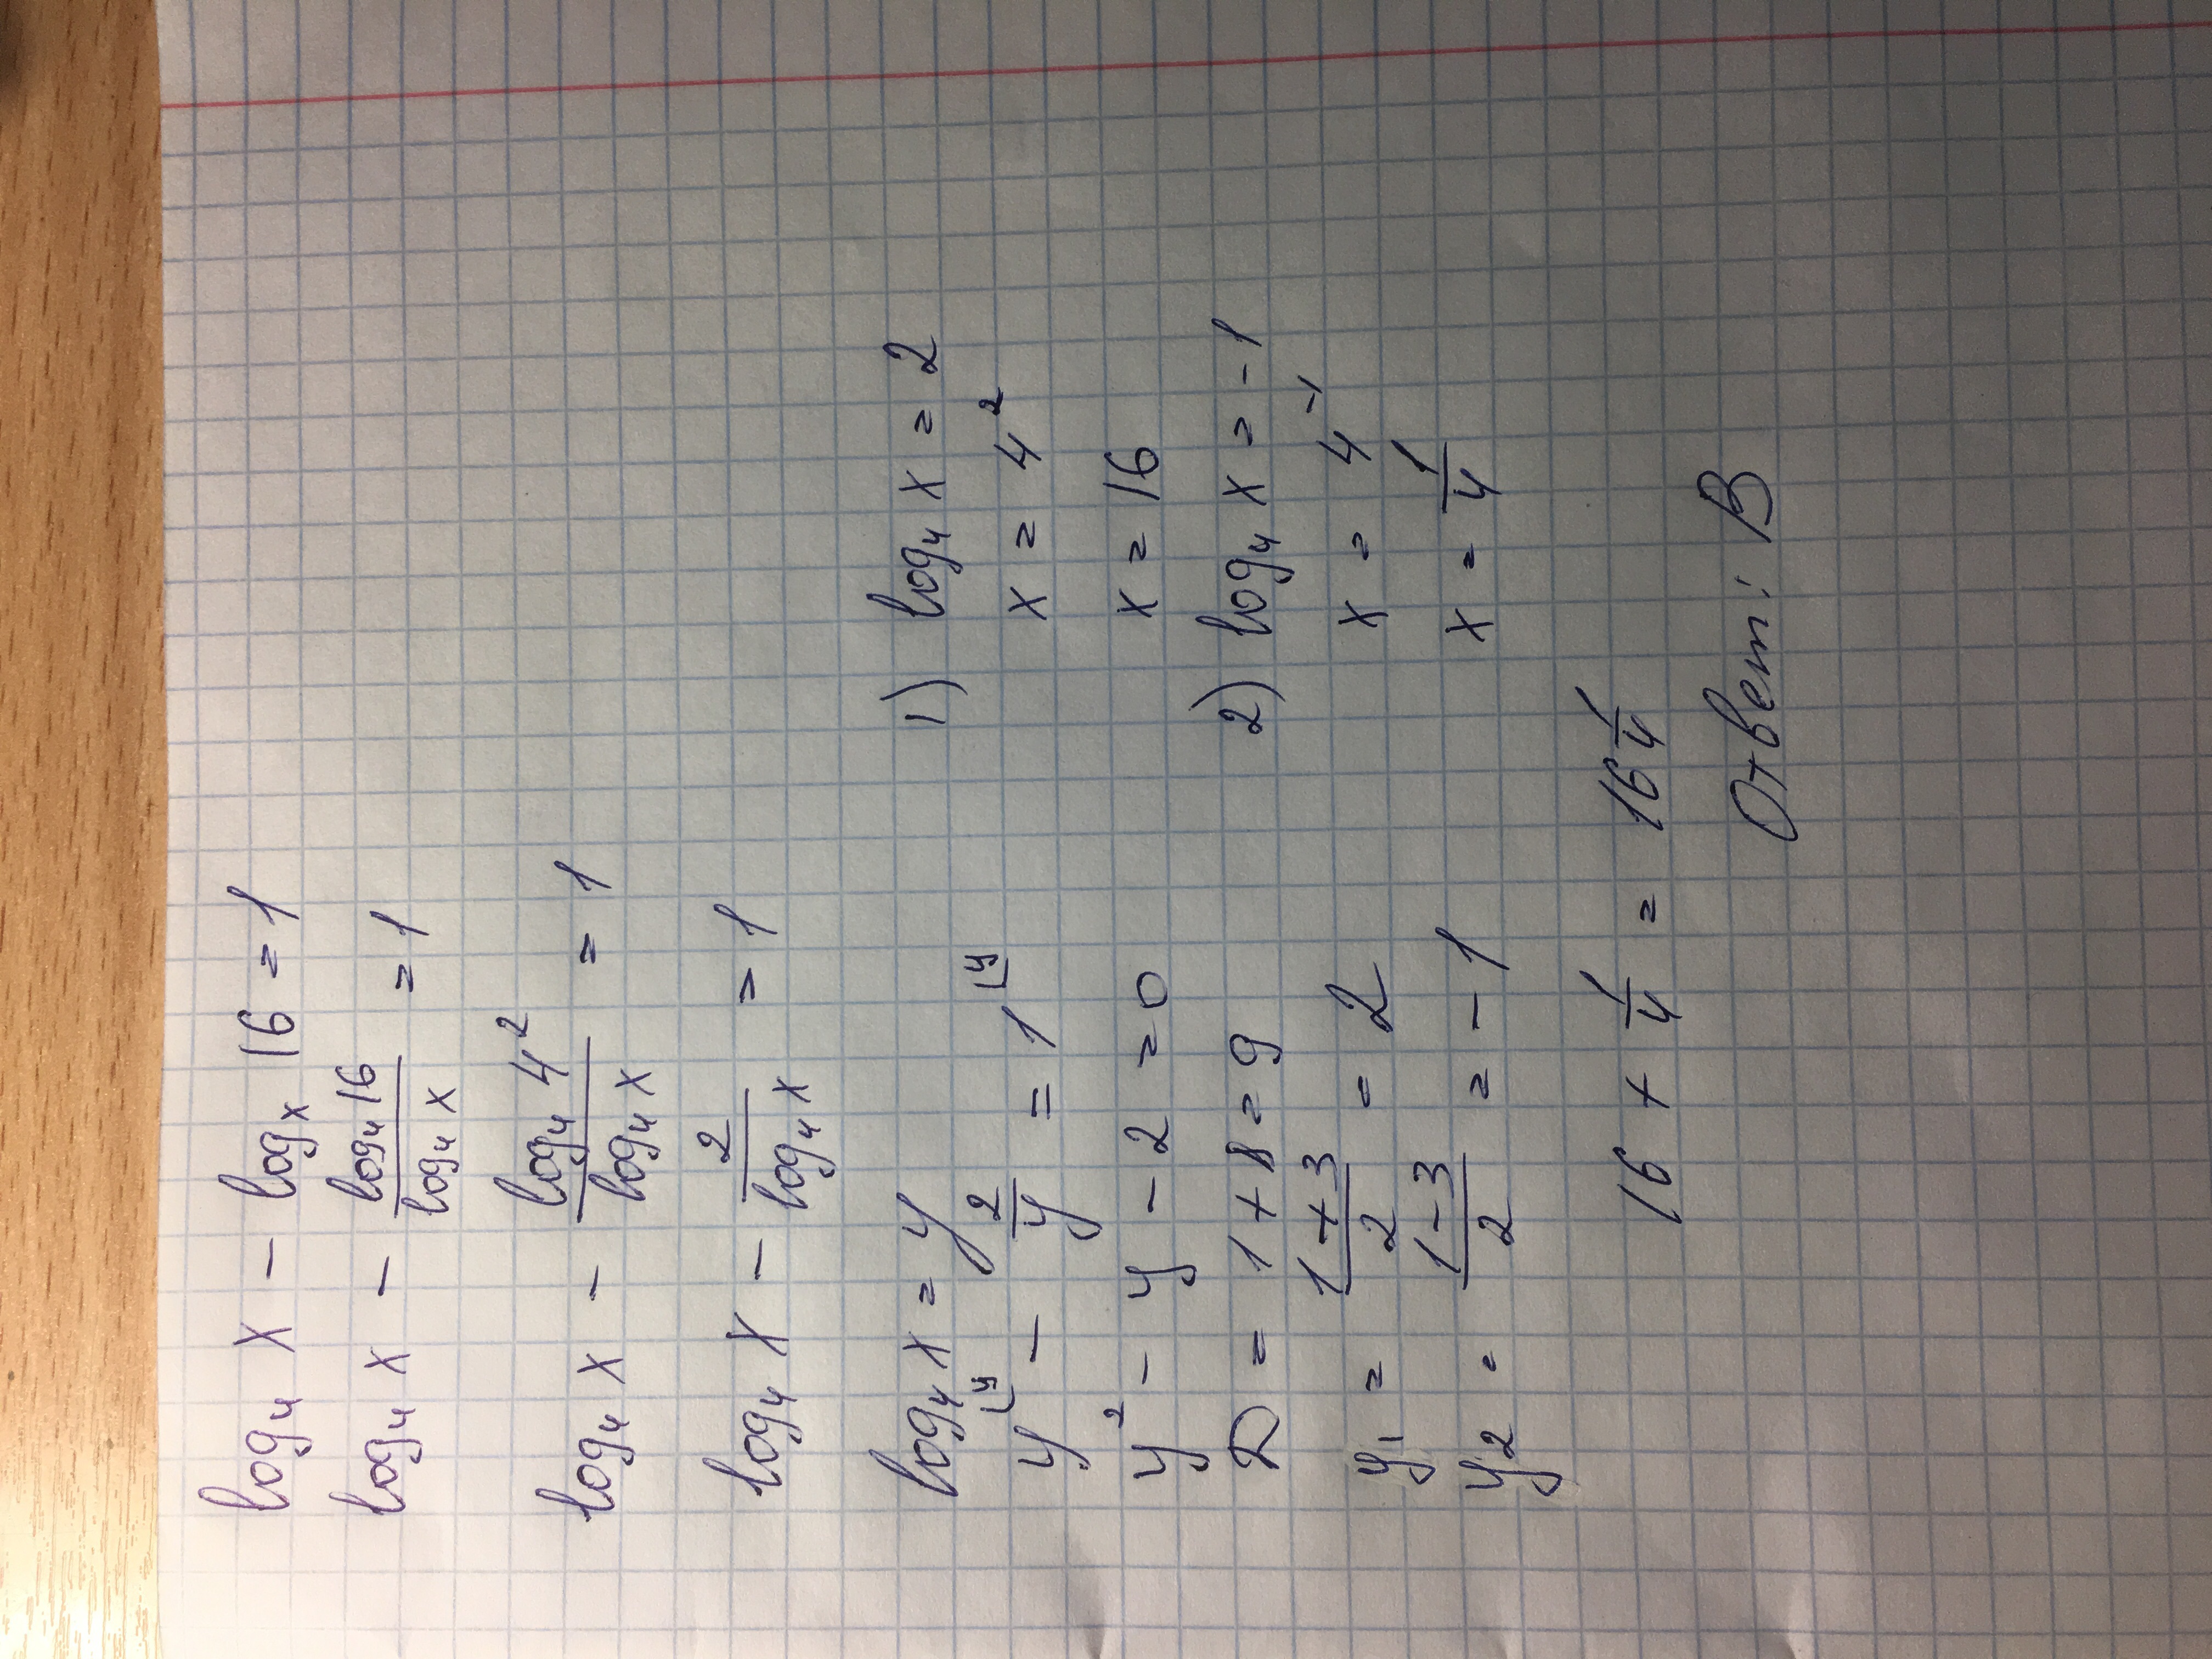 log₄ x − logₓ 16 = 1
log₄ x − log₄ 16 / log₄ x = 1
log₄ x − log₄ 4² / log₄ x = 1
log₄ x − 2 / log₄ x = 1
log₄ x = y
y⌊y − 2/y = 1⌊y
y² − y − 2 = 0
D = 1 + 8 = 9
y₁ = (1 + 3)/2 = 2
y₂ = (1 − 3)/2 = −1
1) log₄ x = 2
x = 4²
x = 16
2) log₄ x = −1
x = 4⁻¹
x = 1/4
16 + 1/4 = 16 1/4
Ответ: В